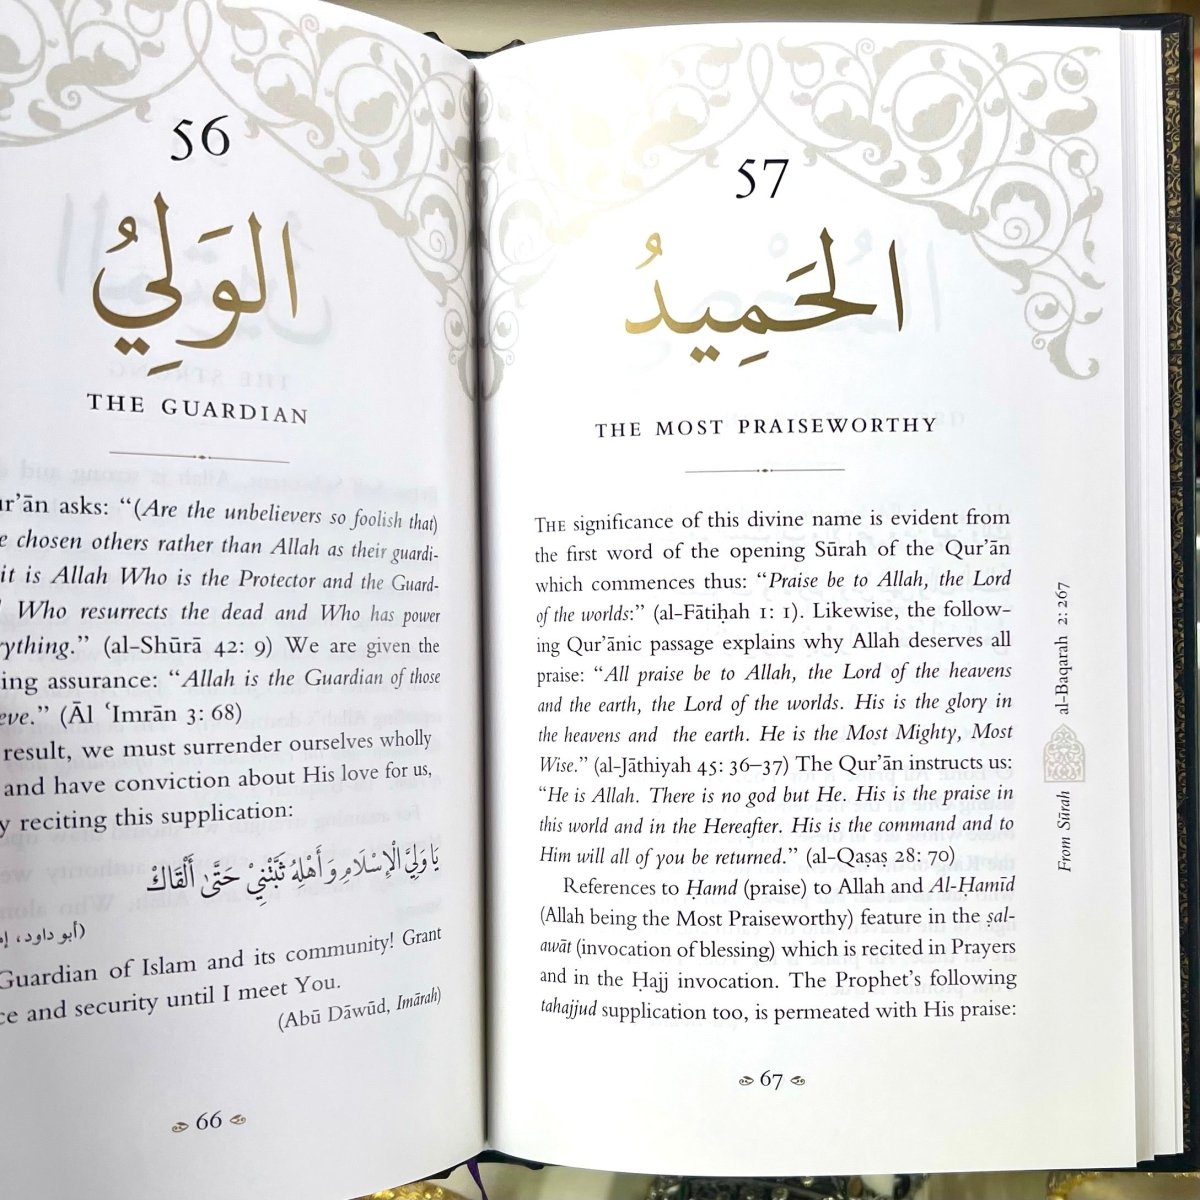 56
الوَلِيُّ
THE GUARDIAN
asks: “(Are the unbelievers so foolish that)
chosen others rather than Allah as their guardi-
it is Allah Who is the Protector and the Guard-
Who resurrects the dead and Who has power
(al-Shūrā 42: 9) We are given the
assurance: “Allah is the Guardian of those
(Āl ‘Imrān 3: 68)
result, we must surrender ourselves wholly
and have conviction about His love for us,
reciting this supplication:
يَا وَلِيَّ الْإِسْلَامِ وَأَهْلِهِ ثَبِّتْنِيْ حَتَّى أَلْقَاكْ
(أبو داود،
Guardian of Islam and its community! Grant
and security until I meet You.
(Abū Dāwūd, Imārah)
66
57
الحَمِيدُ
THE MOST PRAISEWORTHY
THE significance of this divine name is evident from
the first word of the opening Sūrah of the Qur’ān
which commences thus: “Praise be to Allah, the Lord
of the worlds:” (al-Fātiḥah 1: 1). Likewise, the follow-
ing Qur’ānic passage explains why Allah deserves all
praise: “All praise be to Allah, the Lord of the heavens
and the earth, the Lord of the worlds. His is the glory in
the heavens and the earth. He is the Most Mighty, Most
Wise.” (al-Jāthiyah 45: 36–37) The Qur’ān instructs us:
“He is Allah. There is no god but He. His is the praise in
this world and in the Hereafter. His is the command and to
Him will all of you be returned.” (al-Qaṣaṣ 28: 70)
References to Ḥamd (praise) to Allah and Al-Ḥamīd
(Allah being the Most Praiseworthy) feature in the ṣal-
awāt (invocation of blessing) which is recited in Prayers
and in the Ḥajj invocation. The Prophet’s following
tahajjud supplication too, is permeated with His praise:
67
From Sūrah al-Baqarah 2:267